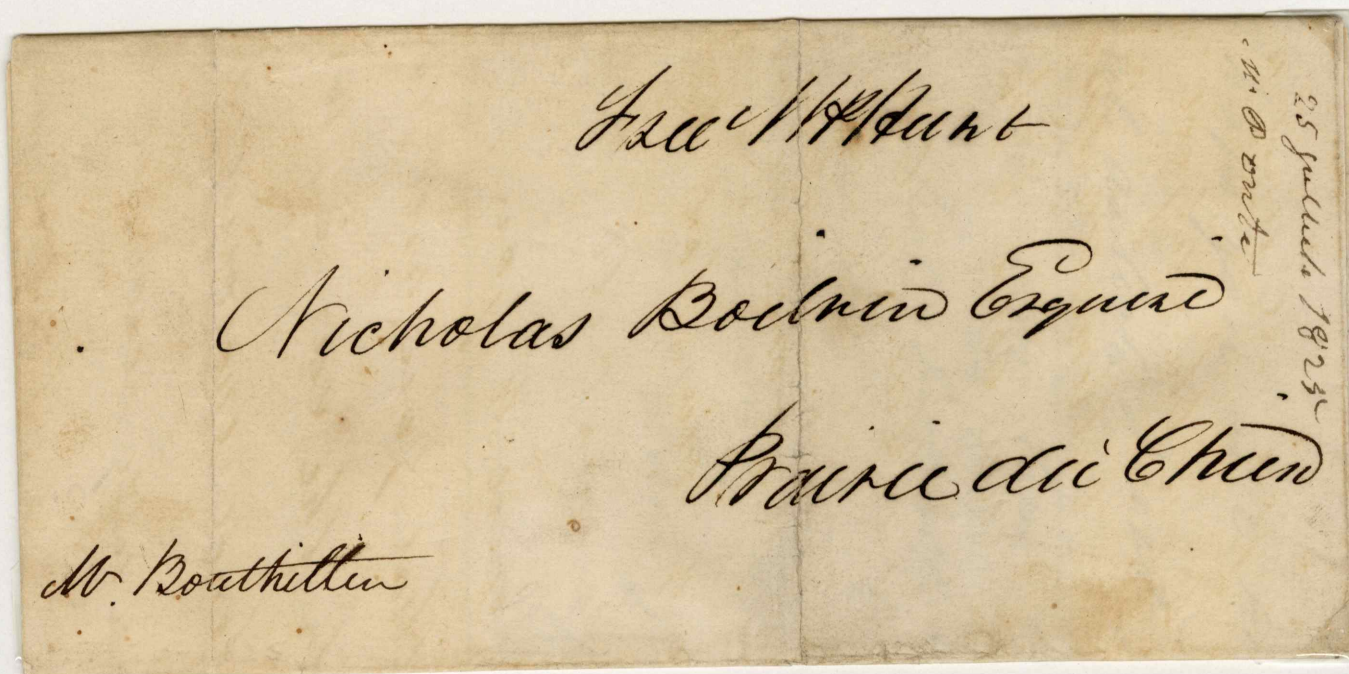 Free W P Hunt
Nicholas Boilvin Esquire
Prairie du Chien
M. Bouthillier
25 juillet 1825